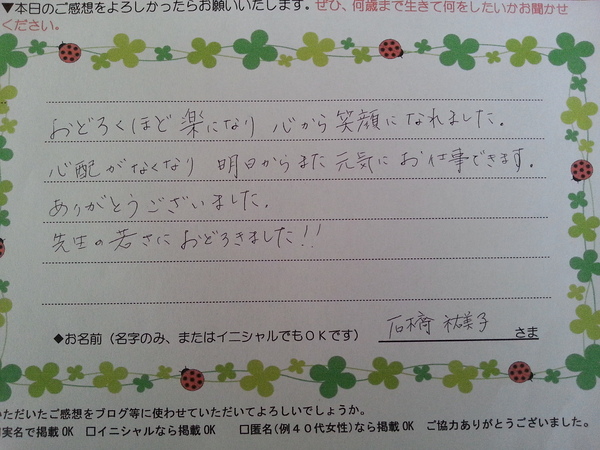 ▼本日のご感想をよろしかったらお願いいたします。ぜひ、何歳まで生きて何をしたいかお聞かせ
ください。
おどろくほど楽になり心から笑顔になれました。
心配がなくなり明日からまた元気にお仕事できます。
ありがとうございました。
先生の若さにおどろきました!!
◆お名前（名字のみ、またはイニシャルでもOKです）
石橋 さま
いただいたご感想をブログ等に使わせていただいてよろしいでしょうか。
実名で掲載OK □イニシャルなら掲載OK □匿名（例40代女性）なら掲載OK ご協力ありがとうございました。